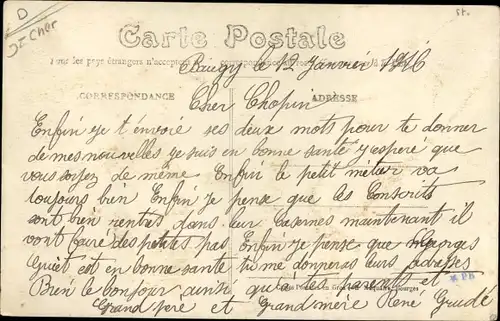 D
Dt Cher
St.
Carte Postale
Tous les pays étrangers n'acceptent
Baugy le 12 Janvier 1916
CORRESPONDANCE
ADRESSE
Cher Chopin
Enfin je t'envoie ses deux mots pour te donner
de mes nouvelles je suis en bonne santé j'espère que
vous soyez de même. Enfin le petit métier va
toujours bien Enfin je pense que les Conscrits
sont bien rentrés dans leur Casernes maintenant il
vont faire des petits pas Enfin je pense que Georges
Guiet est en bonne santé tu me donneras leurs adresses
Bien le bonjour ainsi qu'a tes parents et
* Ph
Grand père et Grand mère René Grudé